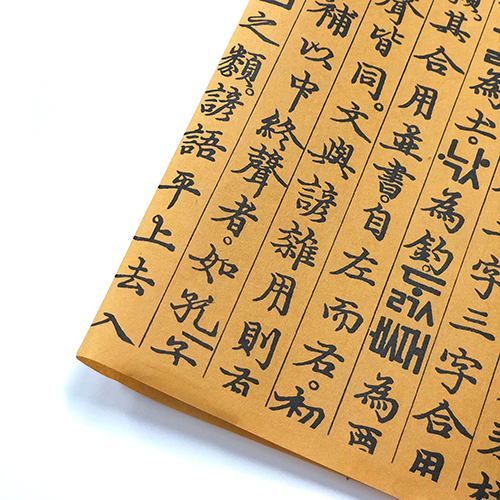 二字三字合用
為土。낛為釣。ᄃᆞᇌᄣᅢ為酉
類。其合用並書。自左而右。初
聲皆同。文與諺雜用則有
補以中終聲者。如孔子
之類。諺語平上去入